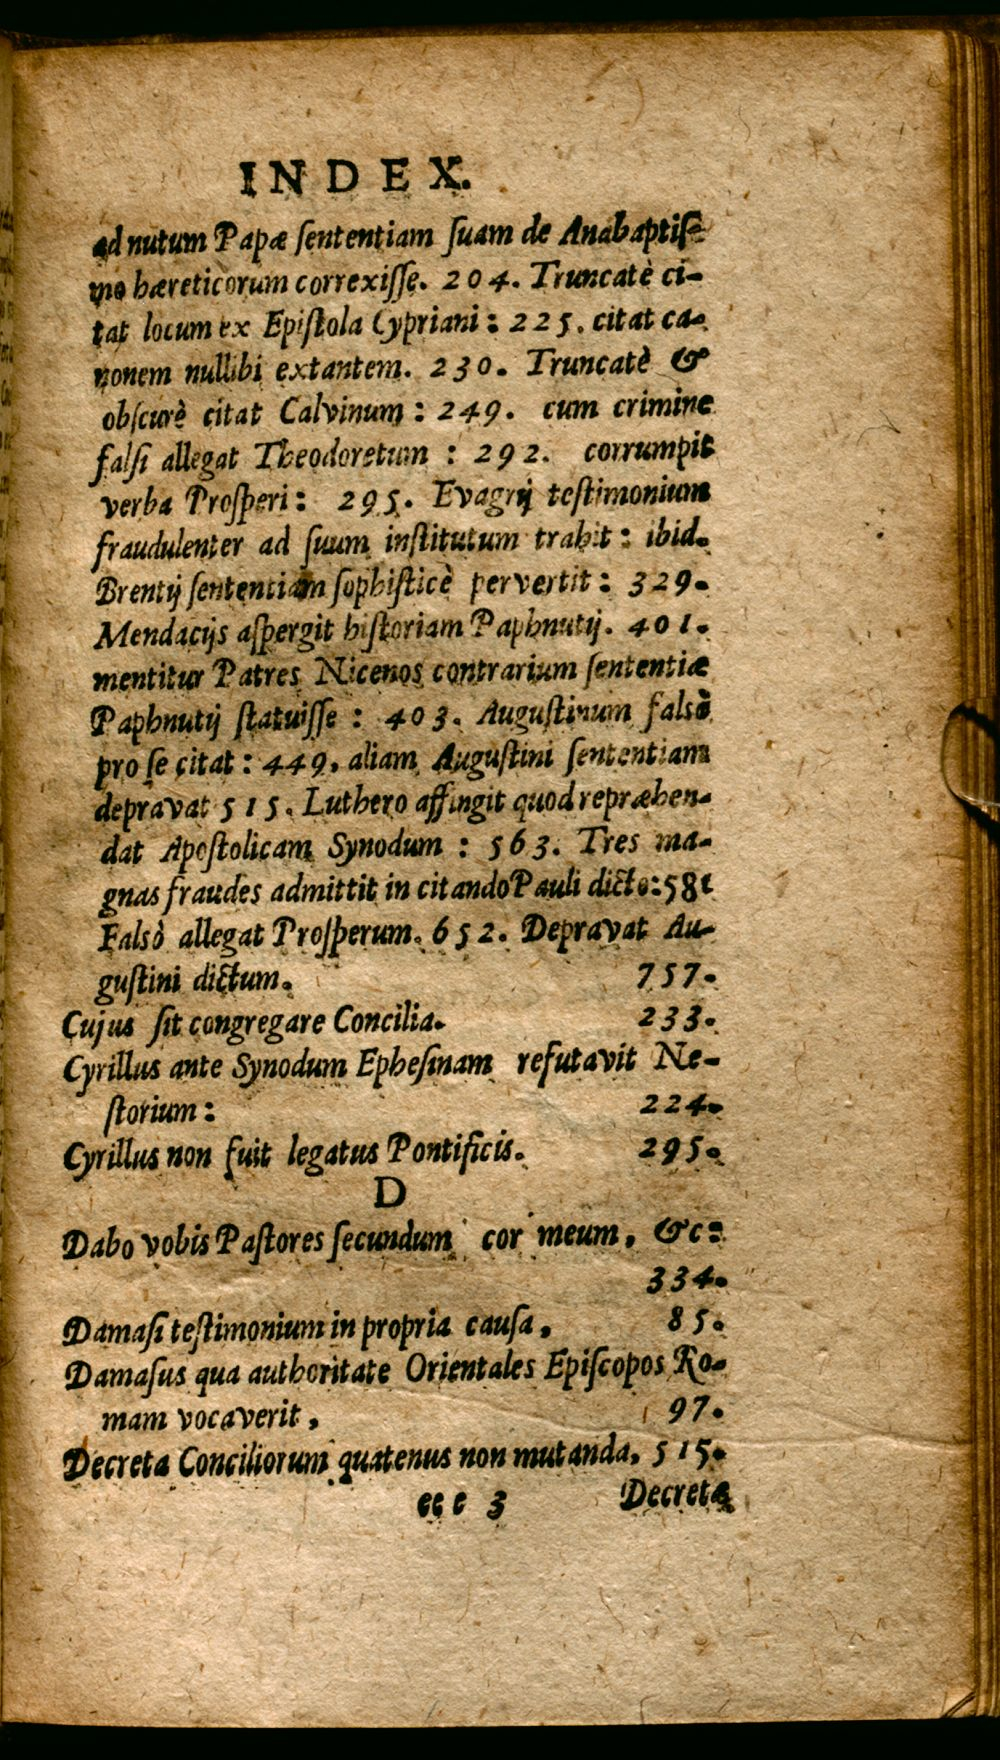 INDEX.
ad nutum Papæ ſententiam ſuam de Anabaptiſ-
mo hæreticorum correxiſſe. 204. Truncatè ci-
tat locum ex Epiſtola Cypriani: 225. citat ca-
nonem nullibi extantem. 230. Truncatè &
obſcurè citat Calvinum: 249. cum crimine
falſi allegat Theodoretum: 292. corrumpit
verba Proſperi: 295. Evagrij teſtimonium
fraudulenter ad ſuum inſtitutum trahit: ibid.
Brentij ſententiam ſophiſticè pervertit: 329.
Mendacijs aſpergit hiſtoriam Paphnutij. 401.
mentitur Patres Nicenos contrarium ſententiæ
Paphnutij ſtatuiſſe: 403. Auguſtinum falsò
pro ſe citat: 449, aliam Auguſtini ſententiam
depravat 515. Luthero affingit quod repræhen-
dat Apoſtolicam Synodum: 563. Tres ma-
gnas fraudes admittit in citando Pauli dicto: 581
Falsò allegat Proſperum. 652. Depravat Au-
guſtini dictum. 757.
Cujus ſit congregare Concilia. 233.
Cyrillus ante Synodum Epheſinam refutavit Ne-
ſtorium: 224.
Cyrillus non fuit legatus Pontificis. 295.
D
Dabo vobis Paſtores ſecundum cor meum, &c:
334.
Damaſi teſtimonium in propria cauſa, 85.
Damaſus qua authoritate Orientales Epiſcopos Ro-
mam vocaverit, 97.
Decreta Conciliorum quatenus non mutanda, 515.
eee 3 Decreta